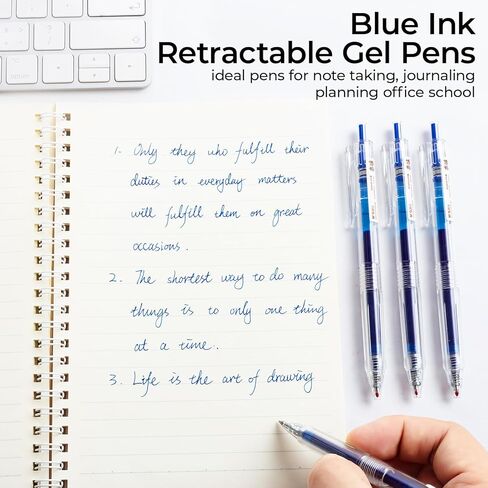 Blue Ink
Retractable Gel Pens
ideal pens for note taking, journaling
planning office school
1. Only they who fulfill their
duties in everyday matters
will fulfill them on great
occasions.
2. The shortest way to do many
things is to only one thing
at a time.
3. Life is the art of drawing